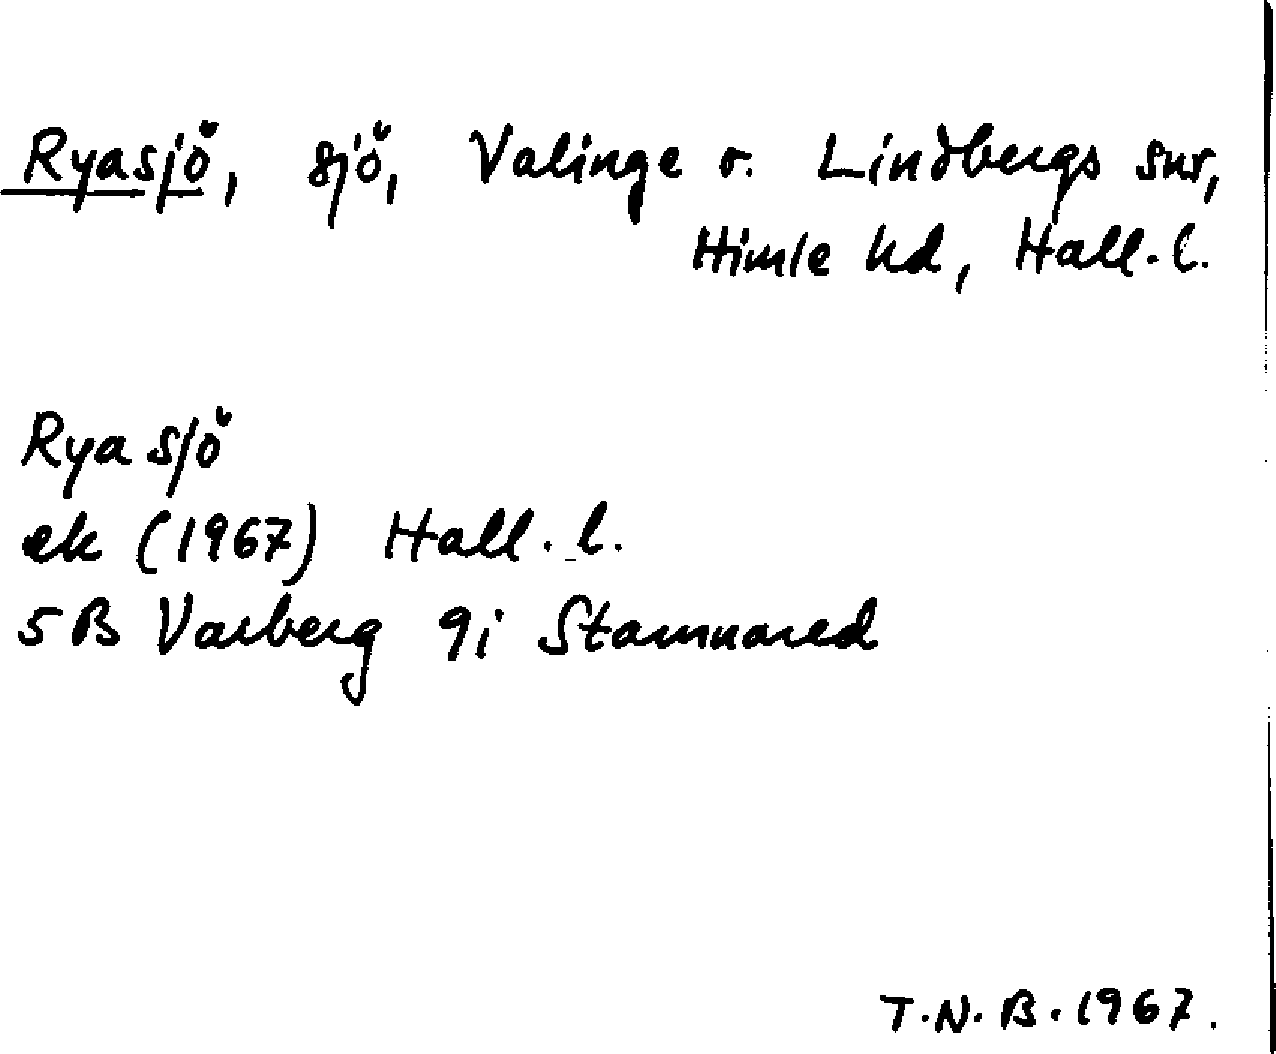 Ryasjö, sjö, Valinge o. Lindbergs snr,
Himle hd, Hall. l.
Ryasjö
ek (1967) Hall. l.
5B Varberg 9i Stamnared
T.N.B. 1967.